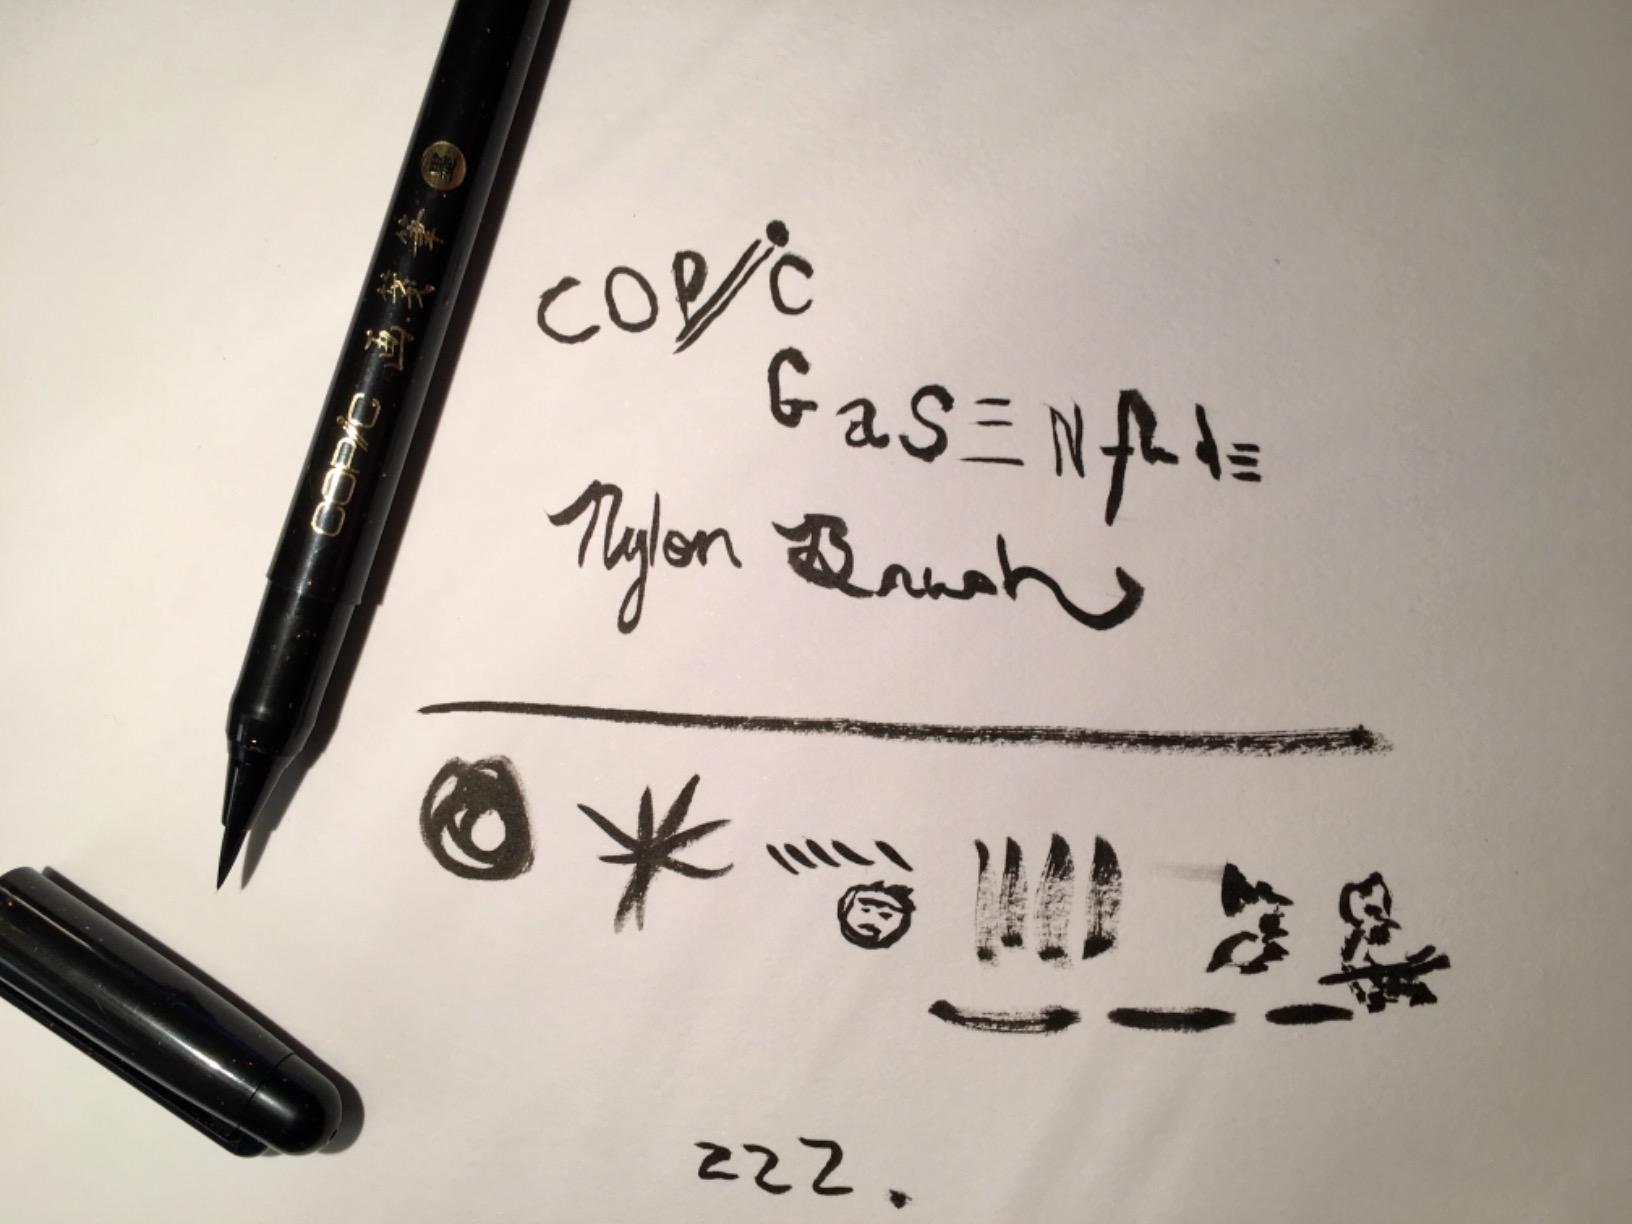 COPIC 画.箋筆
COPiC
GaSENfude
Nylon Brush
zzz.